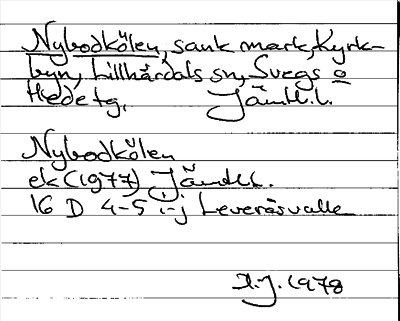 Nybodkölen, sank mark, Kyrk-
byn, Lillhärdals sn, Svegs o
Hede tg, Jämtl.l.
Nybodkölen
ek (1977) Jämtl.l.
16 D 4-5 i-j Leveråsvalle
1978